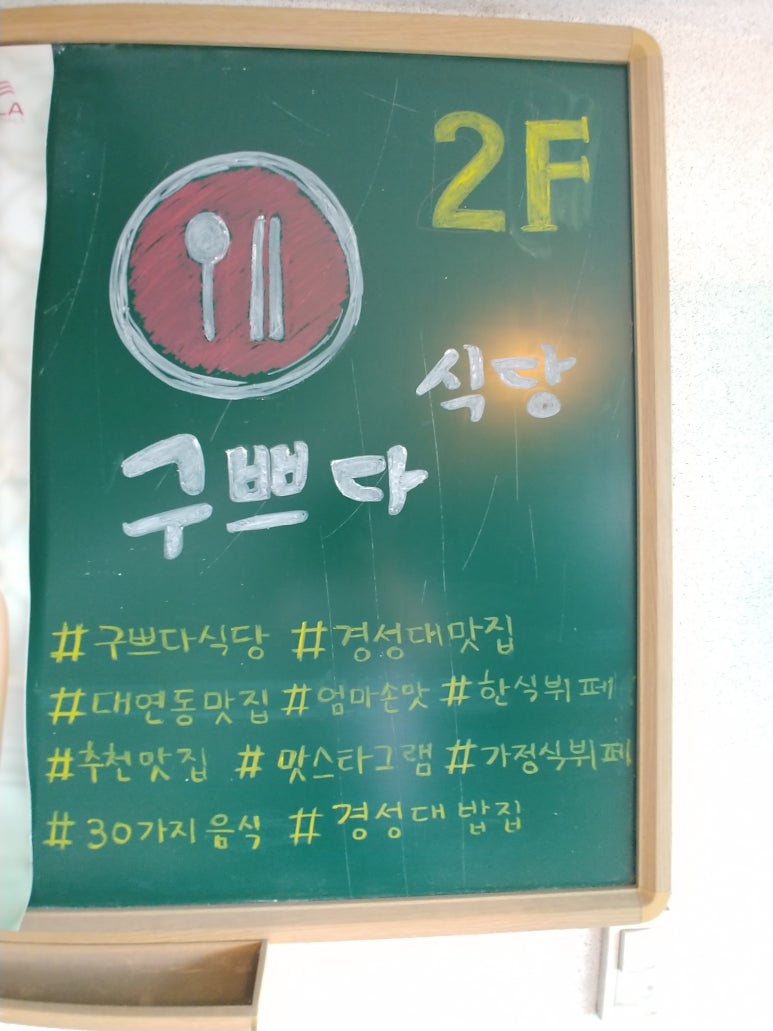 LA
2F
식당
구쁘다
#구쁘다식당 #경성대맛집
#대연동맛집 #엄마손맛 #한식뷔페
#추천맛집 #맛스타그램 #가정식뷔페
#30가지음식 #경성대밥집